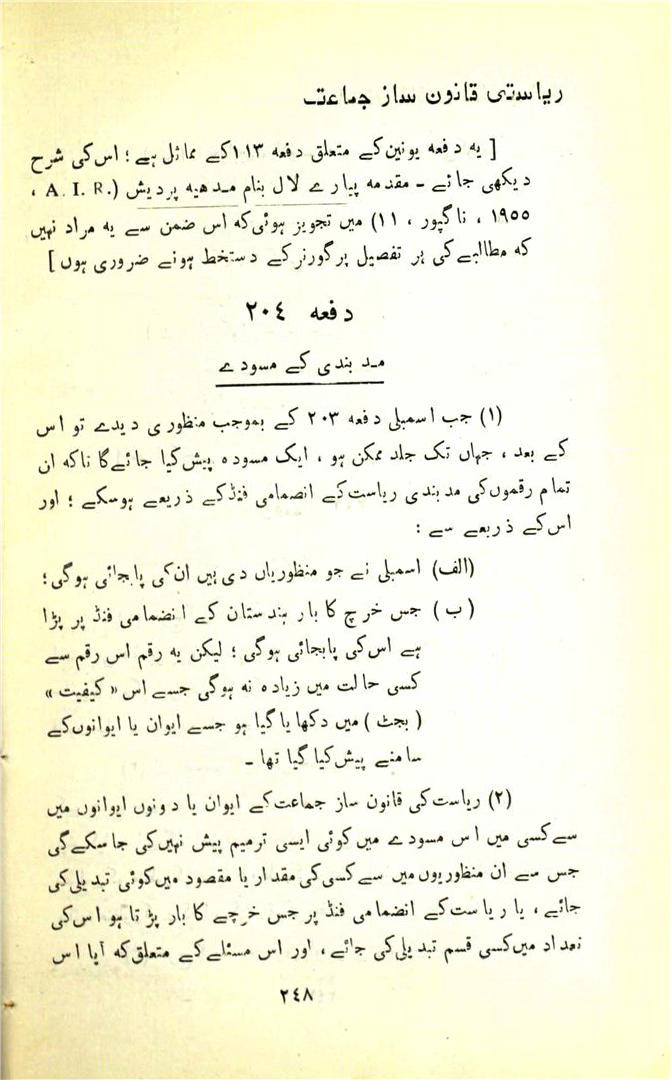 ریاستی قانون ساز جماعت
[ یہ دفعہ یونین کے متعلق دفعہ ۱۱۳ کے مماثل ہے ؛ اس کی شرح
دیکھی جائے ۔ مقدمہ پیارے لال بنام مدھیہ پردیش (A. I. R. ،
۱۹۵۵ ، ناگپور ، ۱۱) میں تجویز ہوئی کہ اس ضمن سے یہ مراد نہیں
کہ مطالبے کی ہر تفصیل پر گورنر کے دستخط ہونے ضروری ہوں ]
دفعہ ۲۰۴
مد بندی کے مسودے
(۱) جب اسمبلی دفعہ ۲۰۳ کے بموجب منظوری دیدے تو اس
کے بعد ، جہاں تک جلد ممکن ہو ، ایک مسودہ پیش کیا جائے گا تاکہ ان
تمام رقموں کی مد بندی ریاست کے انضمامی فنڈ کے ذریعے ہوسکے ؛ اور
اس کے ذریعے سے :
(الف) اسمبلی نے جو منظوریاں دی ہیں ان کی پابجائی ہوگی ؛
(ب) جس خرچ کا بار ہندستان کے انضمامی فنڈ پر پڑا
ہے اس کی پابجائی ہوگی ؛ لیکن یہ رقم اس رقم سے
کسی حالت میں زیادہ نہ ہوگی جسے اس « کیفیت »
( بجٹ ) میں دکھایا گیا ہو جسے ایوان یا ایوانوں کے
سامنے پیش کیا گیا تھا ۔
(۲) ریاست کی قانون ساز جماعت کے ایوان یا دونوں ایوانوں میں
سے کسی میں اس مسودے میں کوئی ایسی ترمیم پیش نہیں کی جاسکے گی
جس سے ان منظوریوں میں سے کسی کی مقدار یا مقصود میں کوئی تبدیلی کی
جائے ، یا ریاست کے انضمامی فنڈ پر جس خرچے کا بار پڑتا ہو اس کی
تعداد میں کسی قسم تبدیلی کی جائے ، اور اس مسئلے کے متعلق کہ آیا اس
۲۴۸